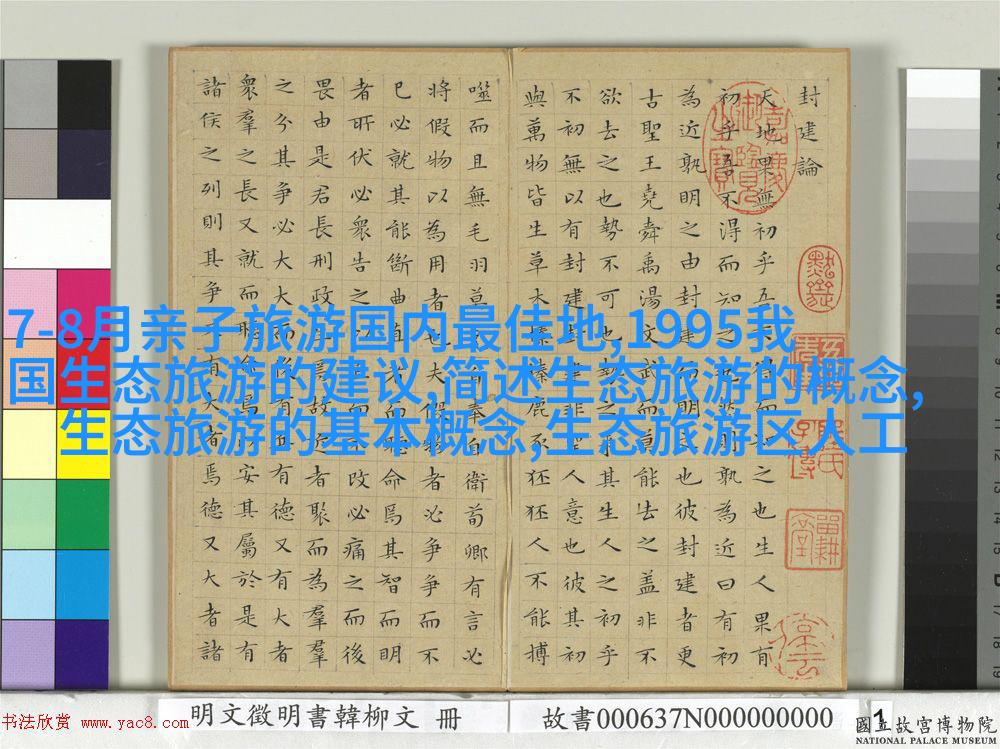 7-8月亲子旅游国内最佳地,1995我
国生态旅游的建议,简述生态旅游的概念,
生态旅游的基本概念,生态旅游区人工
封建論
天地果無初乎吾不得而知之也生人果有
初乎吾不得而知之也然則孰為近曰有初
為近孰明之由封建而明之也彼封建者更
古聖王堯舜禹湯文武而莫能去之蓋非不
欲去之也勢不可也勢之來其生人之初乎
不初無以有封建封建非聖人意也彼其初
與萬物皆生草木榛榛鹿豕狉狉人不能搏
噬而且無毛羽莫克自奉自衛荀卿有言必
將假物以為用者也夫假物者必爭爭而不
已必就其能斷曲直者而聽命焉其智而明
者所伏必衆告之以直而不改必痛之而後
畏由是君長刑政生焉故近者聚而為羣
之分其爭必大大而後有兵有德又有大者
衆羣之長又就而聽命焉以安其屬於是有
諸侯之列則其爭又有大者焉德又大者諸
书法欣赏 www.yac8.com
明文徵明書韓柳文 冊
故書000637N000000000
1
國立故宮博物院
NATIONAL PALACE MUSEUM